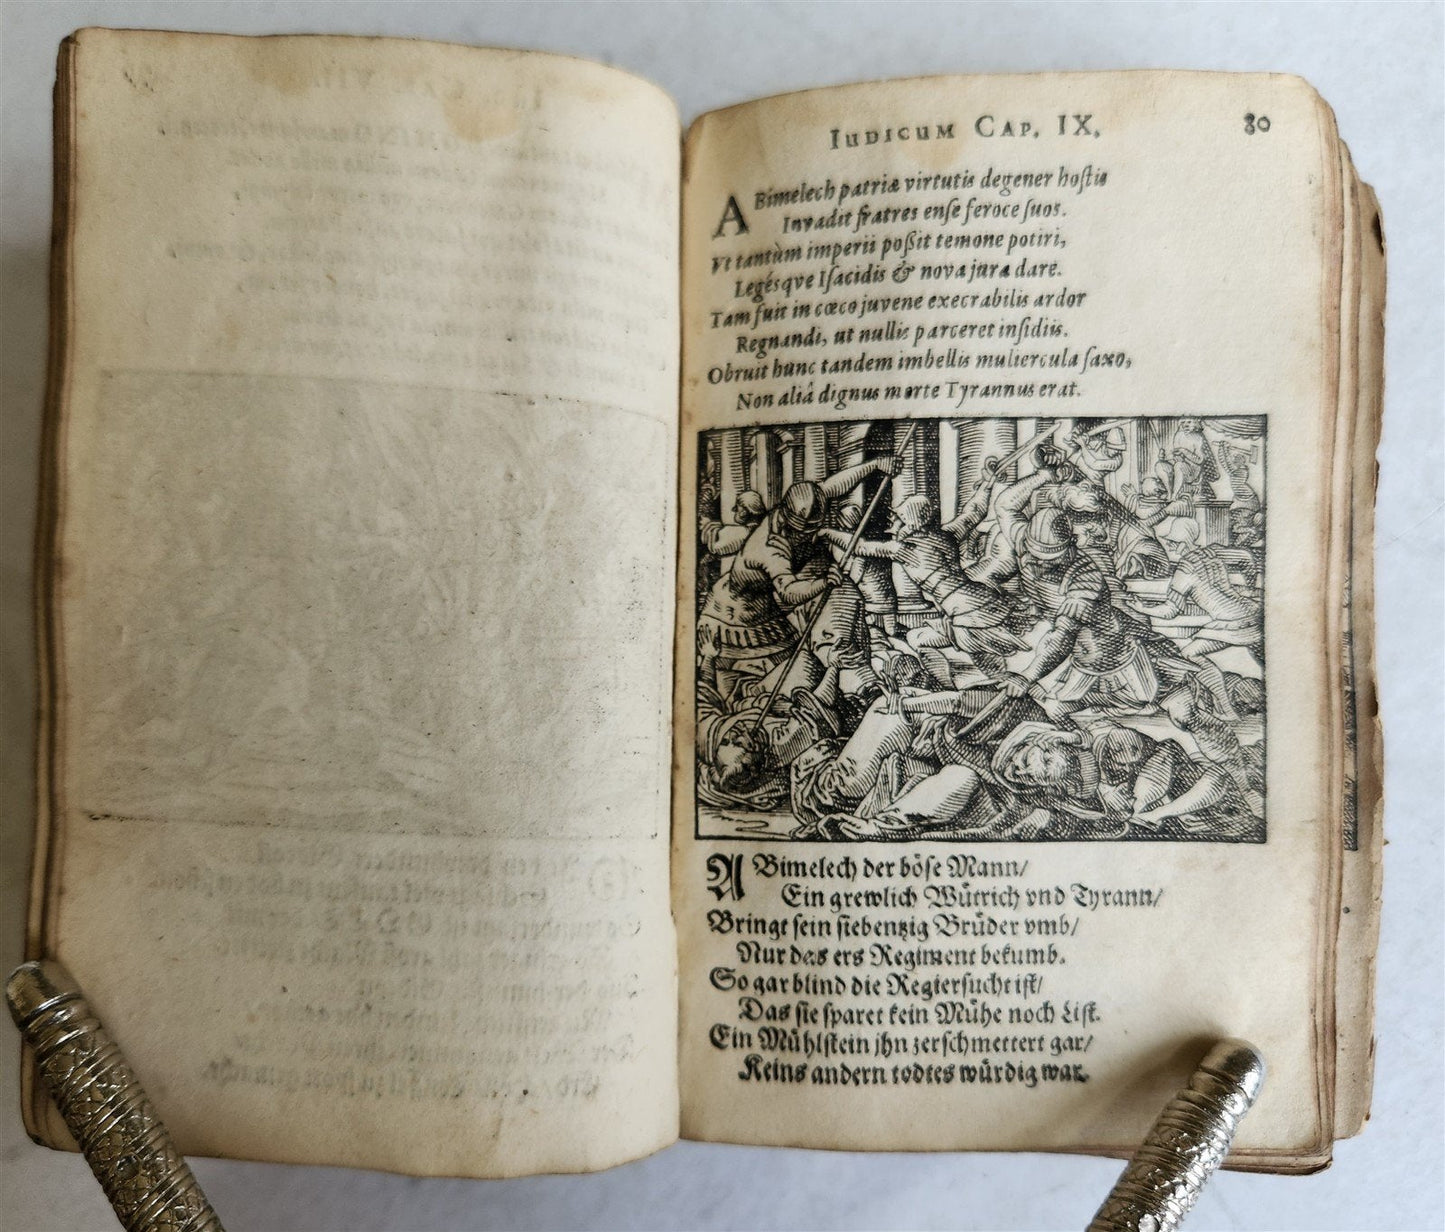 IUDICUM CAP. IX.
80
ABimelech patriæ virtutis degener hostis
Invadit fratres ense feroce suos.
Vt tantùm imperii poßit temone potiri,
Legésqve Isacidis & nova jura dare.
Tam fuit in cœco juvene execrabilis ardor
Regnandi, ut nullis parceret insidiis.
Obruit hunc tandem imbellis muliercula saxo,
Non aliâ dignus morte Tyrannus erat.
ABimelech der böse Mann/
Ein grewlich Wütrich vnd Tyrann/
Bringt sein siebentzig Brüder vmb/
Nur das ers Regiment bekumb.
So gar blind die Regiersucht ist/
Das sie sparet kein Mühe noch List.
Ein Mühlstein jhn zerschmettert gar/
Keins andern todtes würdig war.